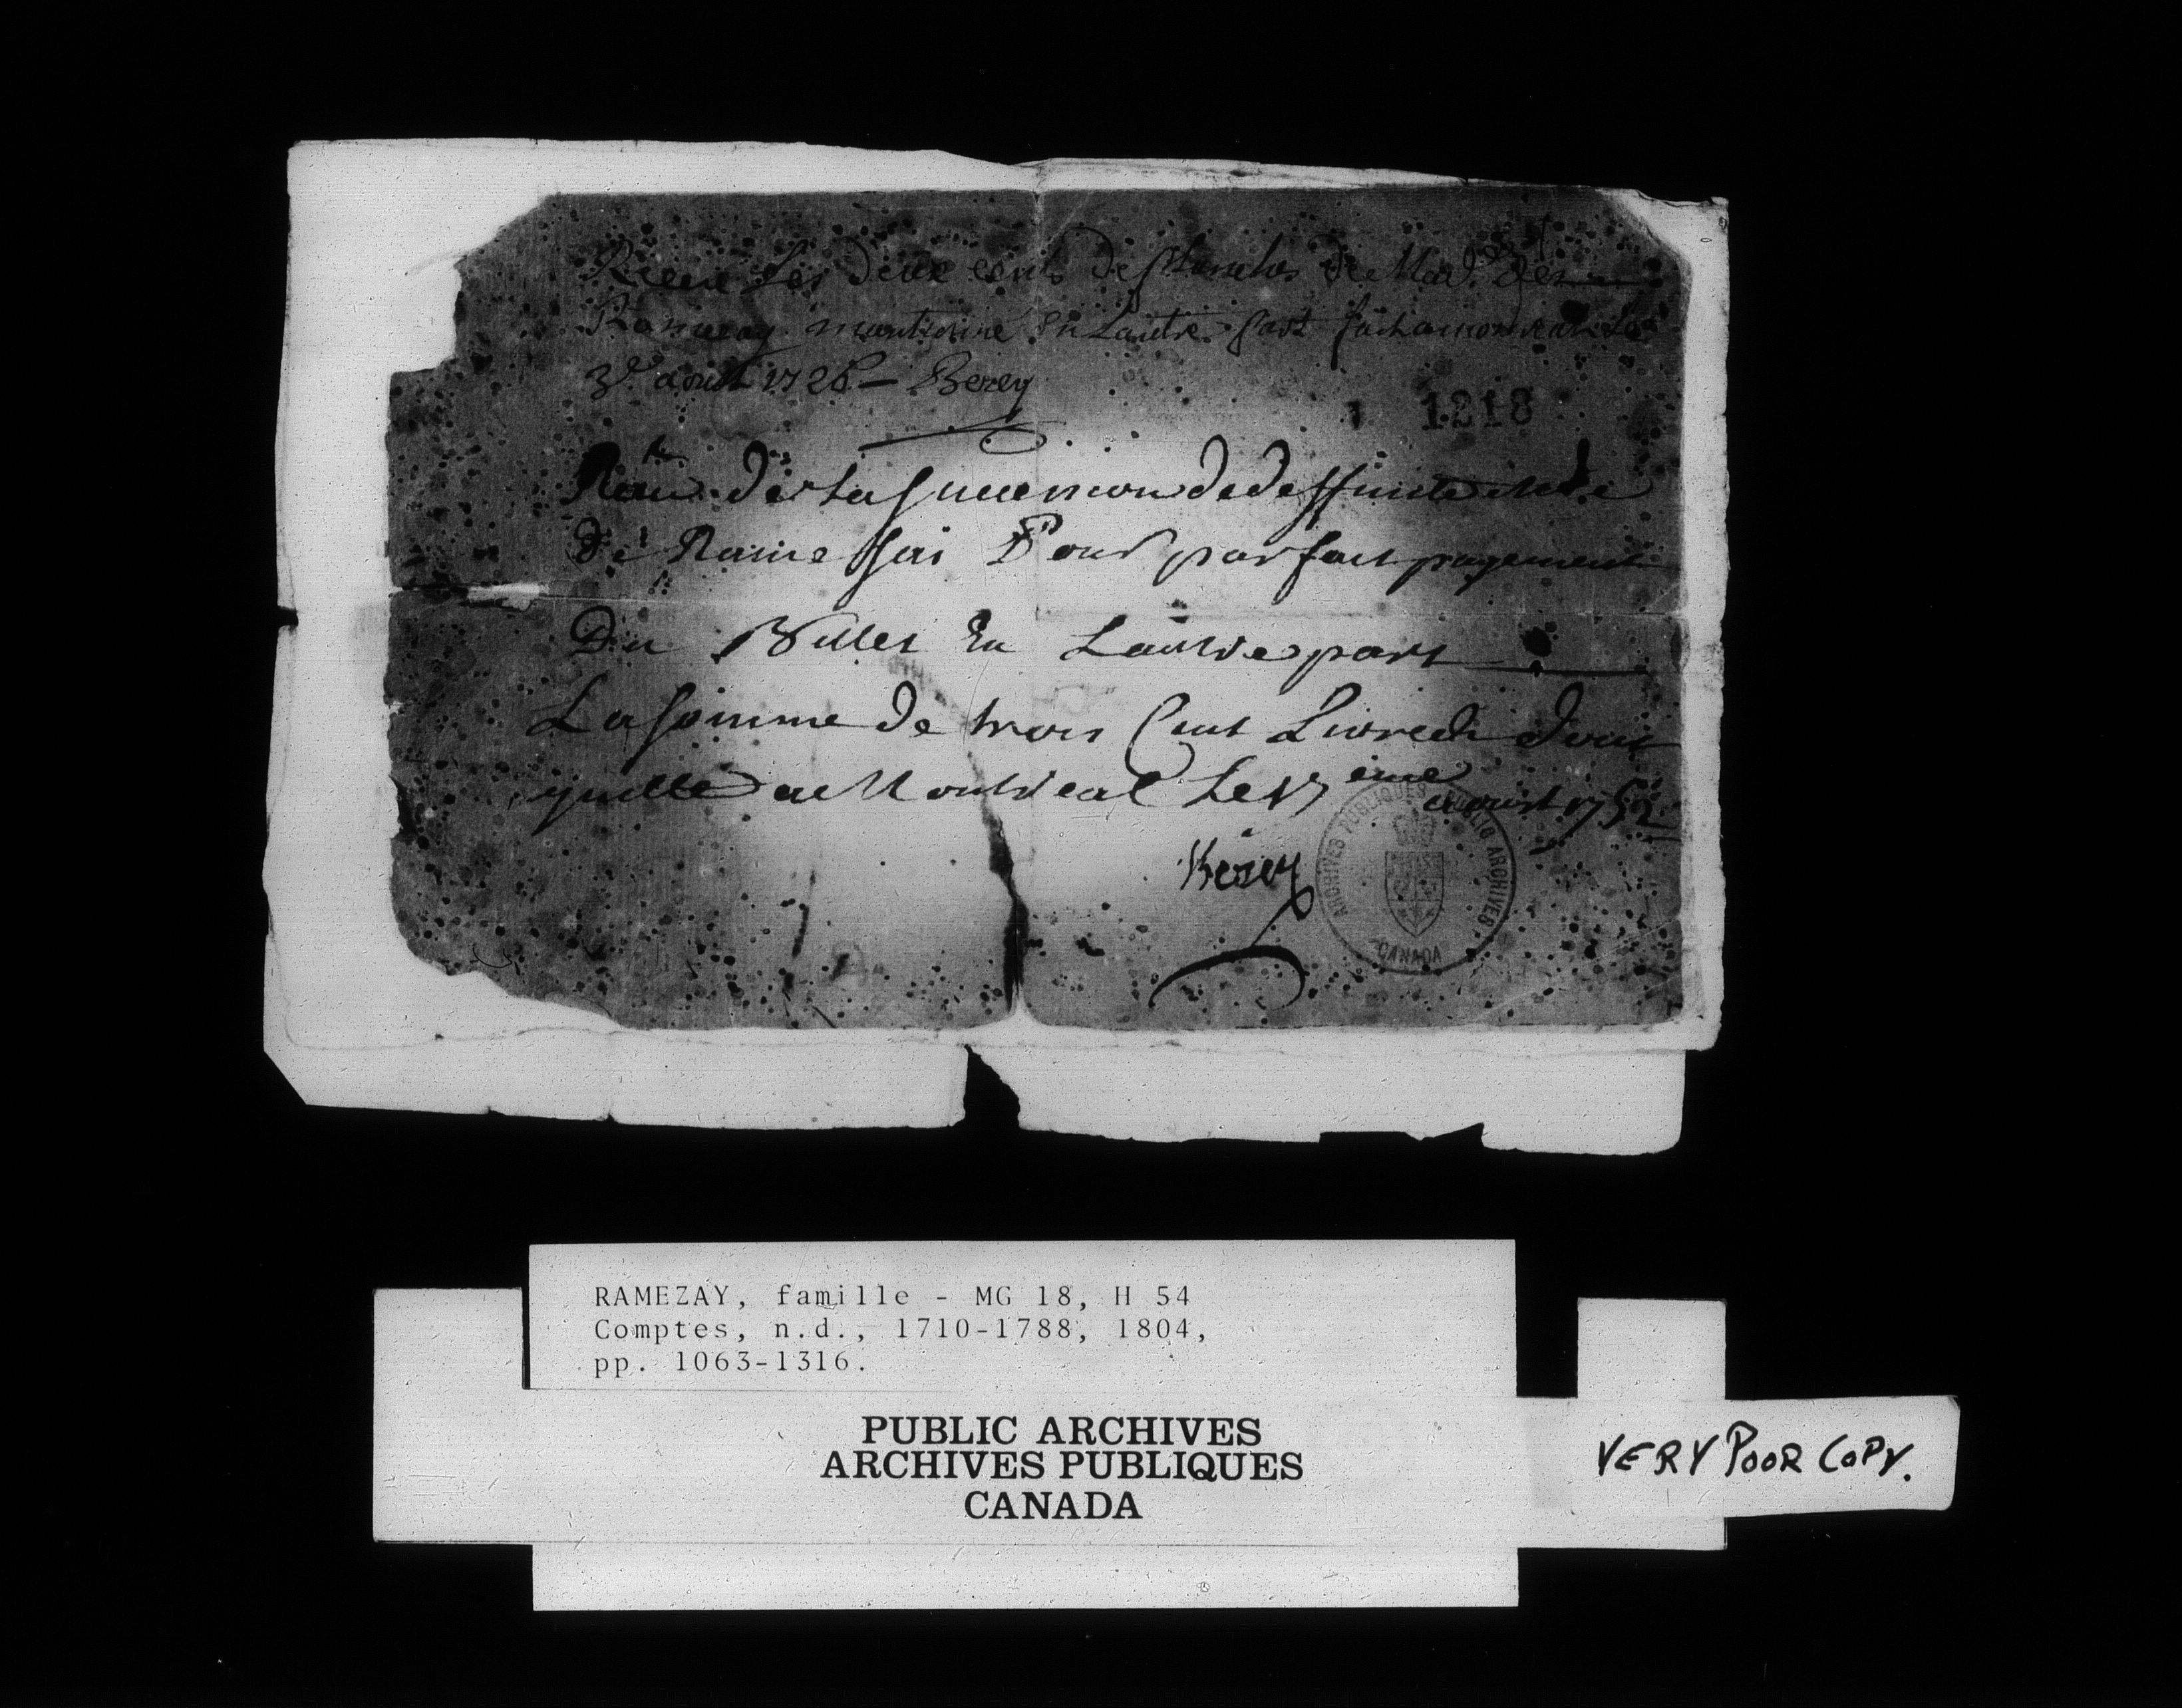 Receu Les deux cents de planches de Mad.e de
Ramezay mentionné En Lautre part fait a monreal Le
3e aoust 1726 — Berey
1218
Receu de La Sucession de deffunte Md.e
De Ramessai Pour parfait payement
Du Billet En Lautre part
La somme de trois Cent Livres dont
quitte a Montreal Le 17 eme aoust 1752
Berey
ARCHIVES PUBLIQUES PUBLIC ARCHIVES
CANADA
RAMEZAY, famille - MG 18, H 54
Comptes, n.d., 1710-1788, 1804,
pp. 1063-1316.
PUBLIC ARCHIVES
ARCHIVES PUBLIQUES
CANADA
VERY POOR COPY.